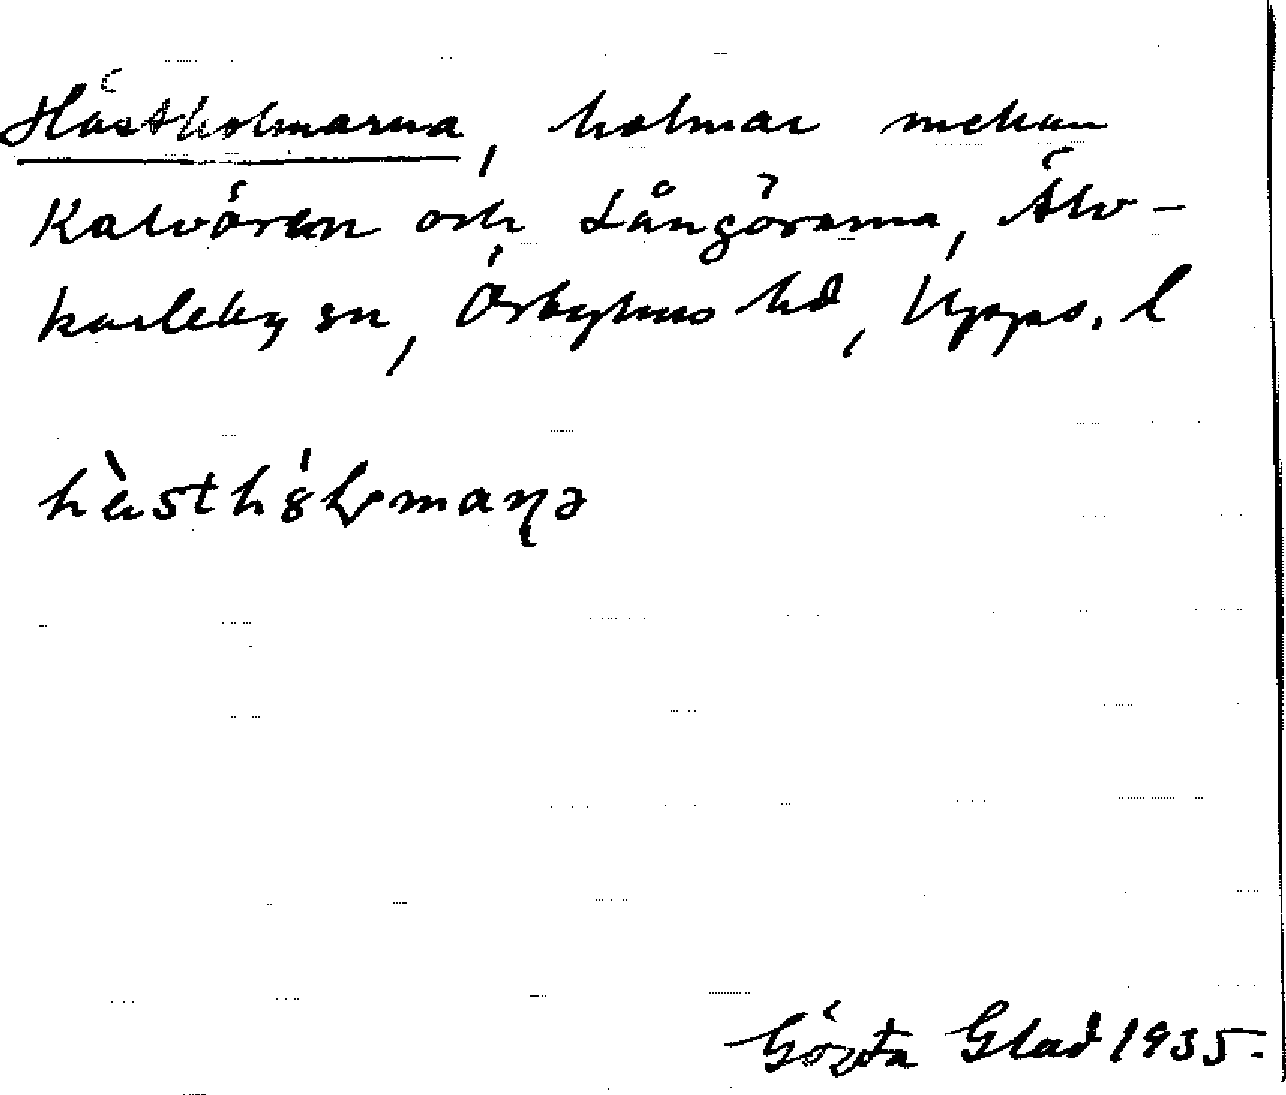 Hästholmarna, holmar mellan
Kalvören och Långörarna, Älv-
karleby sn, Örbyhus hd, Upps. l
hàsthȣ́ɫmaɳə
Gösta Glad 1935.